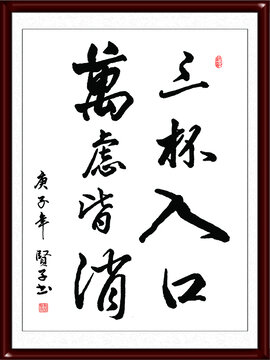 三杯入口
萬慮皆消
庚子年 賢子书